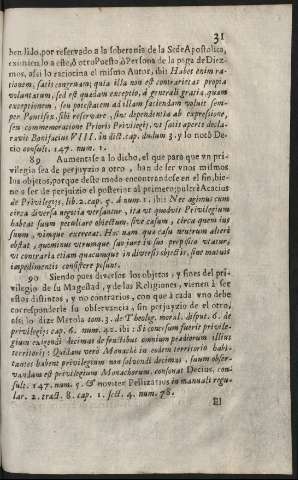 31
ben sido, por reservado a la soberonia de la Sede Apostolica,
eximiendo a este, ò otro Puesto, ò Persona de la paga de Diez-
mos, assi lo raciocina el mismo Autor, ibi: Habet enim ra-
tionem, satis congruam, quia illa non est contrarietas propia
voluntatum, sed est quædam exceptio, à generali gratia, quam
exceptionem, seu potestatem ad illam faciendam voluit sem-
per Pontifex, sibi reservare, sine dependentia ab expresione,
seu commemoratione Prioris Privilegij, ut satis aperte decla-
ravit Bonifacius VIII. in dict. cap. dudum 3. y lo notò De-
cio consult. 147. num. 1.
89 Aumentase a lo dicho, el que para que vn pri-
vilegio sea de perjuyzio a otro, han de ser vnos mismos
los objetos, porque deste modo encontrandose en el fin, bie-
ne a ser de perjuizio el posterior al primero; pulcrè Acacius
de Privilegijs, lib. 2. cap. 5. à num. 1. ibi: Nec agimus cum
circa diversa negotia versantur, ita vt quodvis Privilegium
habeat suum peculiare obiectum, sive casum, circa quem ius
suum, vimque exerceat. Hoc nam que casu neutrum alteri
obstat, quominus vtrumque suo iure in suo proposito vtatur,
vt contraria etiam quacumque in diversis obiectis, sine mutuis
impedimentis consistere possunt.
90 Siendo pues diversos los objetos, y fines del pri-
vilegio de su Magestad, y de las Religiones, vienen à ser
estos distintos, y no contrarios, con que à cada vno debe
corresponderle su observancia, sin perjuyzio de el otro,
assi lo dize Merola tom. 3. de Theolog. moral. disput. 6. de
privilegijs cap. 6. num. 42. ibi: Si concesum fuerit privile-
gium exigendi decimas de fructibus omnium prædiorum illius
territorij: Quidam verò Monachi in eodem territorio habi-
tantes habent privilegium non solvendi decimas, suum obser-
vandum est privilegium Monachorum. consonat Decius, con-
sult. 147. num. 5. & noviter Pellizarius in manuali regu-
lar. 2. tract. 8. cap. 1. sect. 4. num. 78.
El